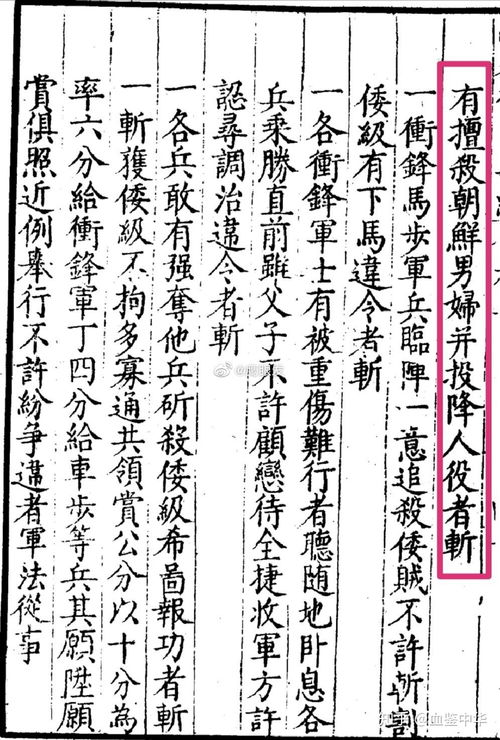 有擅殺朝鮮男婦并投降人役者斬
一衝鋒馬步軍兵臨陣一意追殺倭賊不許斬割
倭級有下馬違令者斬
一各衝鋒軍士有被重傷難行者聽隨地卧息各
兵乘勝直前雖父子不許顧戀待全捷收軍方許
認尋調治違令者斬
一各兵敢有强奪他兵斫殺倭級希啚報功者斬
一斬獲倭級不拘多寡通共領賞公分以十分為
率六分給衝鋒軍丁四分給車步等兵其願陞願
賞俱照近例舉行不許紛爭違者軍法從事
知乎 @血鉴中华